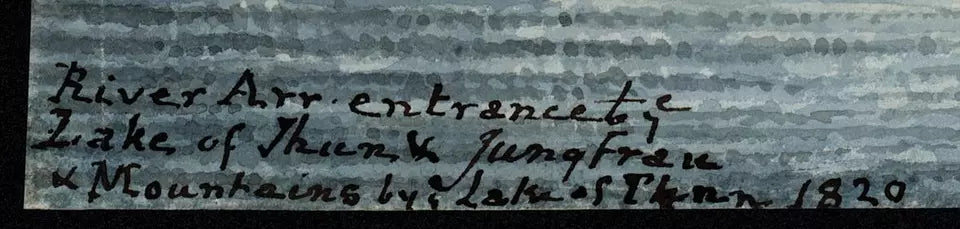 River Arr. entrance to yᵉ
Lake of Thun & Jungfrau
& Mountains by yᵉ Lake of Thun 1820